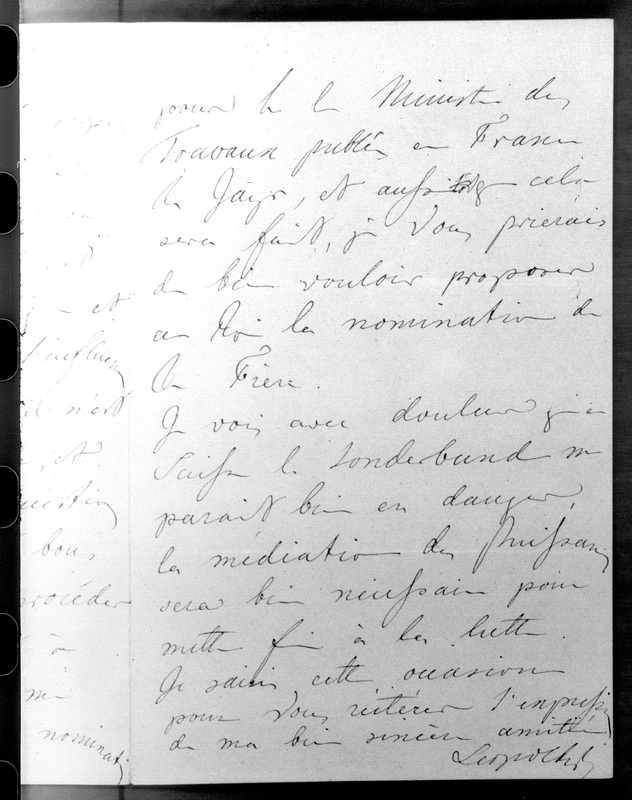 pour le Ministre des
Travaux publics en France
Mr Jayr, et aussitôt que cela
sera fait, je vous prierais
de bien vouloir proposer
au Roi la nomination de
Mr Frère.
Je vois avec douleur qu'en
Suisse le Sonderbund me
parait bien en danger,
la médiation des Puissances
sera bien nécessaire pour
mettre fin à la lutte.
Je saisis cette occasion
pour vous réitérer l'expression
de ma bien sincère amitié
Leopold
et
l'influence
il n'est
, et
question
bons
procéder
à
me
nominati